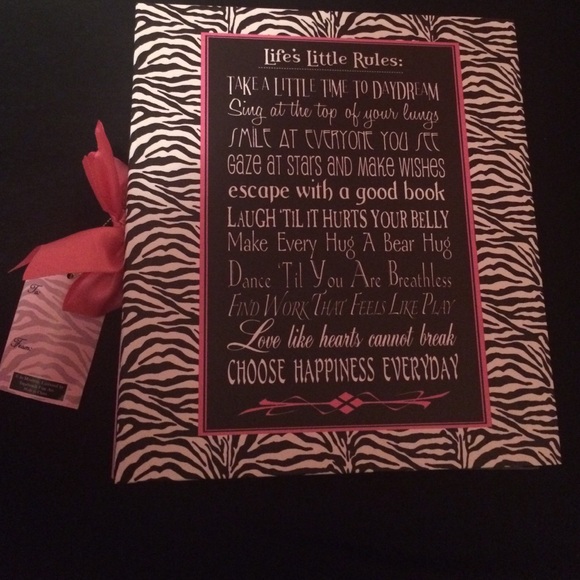 Life's Little Rules:
TAKE A LITTLE TIME TO DAYDREAM
Sing at the top of your lungs
SMILE AT EVERYONE YOU SEE
GAZE AT STARS AND MAKE WISHES
escape with a good book
LAUGH 'TIL IT HURTS YOUR BELLY
Make Every Hug A Bear Hug
Dance 'Til You Are Breathless
FIND WORK THAT FEELS LIKE PLAY
Love like hearts cannot break
CHOOSE HAPPINESS EVERYDAY
To:
From: